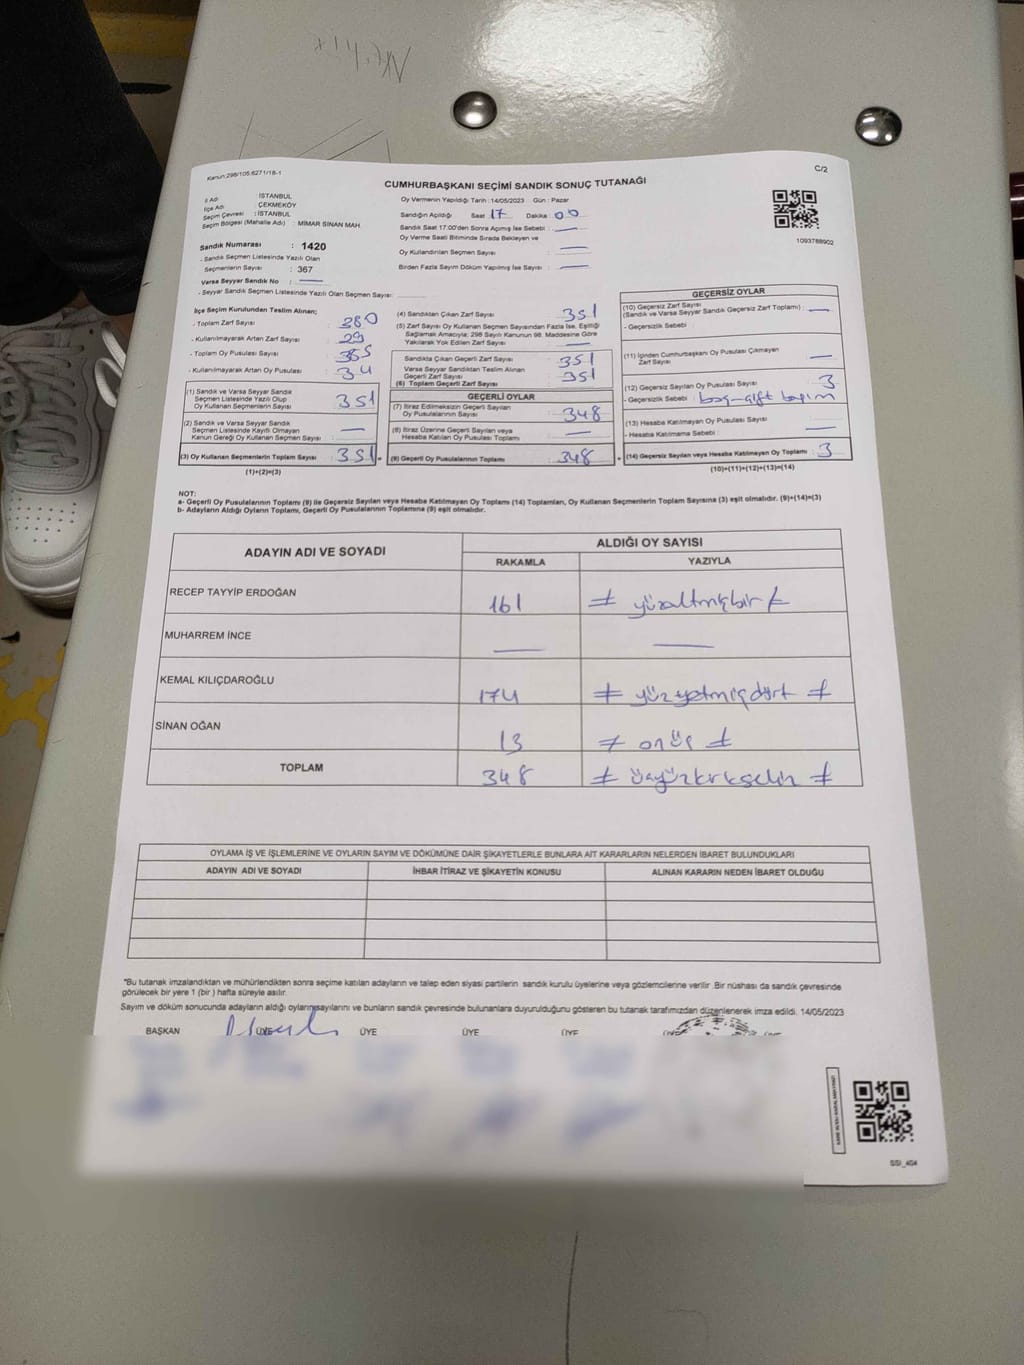 Kanun:298/105,6271/18-1
C/2
CUMHURBAŞKANI SEÇİMİ SANDIK SONUÇ TUTANAĞI
İl Adı : İSTANBUL
İlçe Adı : ÇEKMEKÖY
Seçim Çevresi : İSTANBUL
Seçim Bölgesi (Mahalle Adı) : MİMAR SİNAN MAH.
Sandık Numarası : 1420
- Sandık Seçmen Listesinde Yazılı Olan
Seçmenlerin Sayısı : 367
Varsa Seyyar Sandık No : —
- Seyyar Sandık Seçmen Listesinde Yazılı Olan Seçmen Sayısı:
Oy Vermenin Yapıldığı Tarih : 14/05/2023 Gün : Pazar
Sandığın Açıldığı Saat : 17 Dakika : 00
Sandık Saat 17:00'den Sonra Açılmış İse Sebebi : —
Oy Verme Saati Bitiminde Sırada Bekleyen ve
Oy Kullandırılan Seçmen Sayısı : —
Birden Fazla Sayım Döküm Yapılmış İse Sayısı : —
1093788902
İlçe Seçim Kurulundan Teslim Alınan;
- Toplam Zarf Sayısı : 380
- Kullanılmayarak Artan Zarf Sayısı : 29
- Toplam Oy Pusulası Sayısı : 385
- Kullanılmayarak Artan Oy Pusulası : 34
(1) Sandık ve Varsa Seyyar Sandık
Seçmen Listesinde Yazılı Olup
Oy Kullanan Seçmenlerin Sayısı : 351
(2) Sandık ve Varsa Seyyar Sandık
Seçmen Listesinde Kayıtlı Olmayan
Kanun Gereği Oy Kullanan Seçmen Sayısı : —
(3) Oy Kullanan Seçmenlerin Toplam Sayısı : 351 =
(1)+(2)=(3)
(4) Sandıktan Çıkan Zarf Sayısı : 351
(5) Zarf Sayısı Oy Kullanan Seçmen Sayısından Fazla İse, Eşitliği
Sağlamak Amacıyla; 298 Sayılı Kanunun 98. Maddesine Göre
Yakılarak Yok Edilen Zarf Sayısı : —
Sandıkta Çıkan Geçerli Zarf Sayısı : 351
Varsa Seyyar Sandıktan Teslim Alınan
Geçerli Zarf Sayısı : 351
(6) Toplam Geçerli Zarf Sayısı :
GEÇERLİ OYLAR
(7) İtiraz Edilmeksizin Geçerli Sayılan
Oy Pusulalarının Sayısı : 348
(8) İtiraz Üzerine Geçerli Sayılan veya
Hesaba Katılan Oy Pusulası Toplamı : —
(9) Geçerli Oy Pusulalarının Toplamı : 348 +
GEÇERSİZ OYLAR
(10) Geçersiz Zarf Sayısı
(Sandık ve Varsa Seyyar Sandık Geçersiz Zarf Toplamı) : —
- Geçersizlik Sebebi :
(11) İçinden Cumhurbaşkanı Oy Pusulası Çıkmayan
Zarf Sayısı : —
(12) Geçersiz Sayılan Oy Pusulası Sayısı : 3
- Geçersizlik Sebebi : boş-çift basım
(13) Hesaba Katılmayan Oy Pusulası Sayısı : —
- Hesaba Katılmama Sebebi :
(14) Geçersiz Sayılan veya Hesaba Katılmayan Oy Toplamı : 3
(10)+(11)+(12)+(13)=(14)
NOT:
a- Geçerli Oy Pusulalarının Toplamı (9) ile Geçersiz Sayılan veya Hesaba Katılmayan Oy Toplamı (14) Toplamları, Oy Kullanan Seçmenlerin Toplam Sayısına (3) eşit olmalıdır. (9)+(14)=(3)
b- Adayların Aldığı Oyların Toplamı, Geçerli Oy Pusulalarının Toplamına (9) eşit olmalıdır.
ADAYIN ADI VE SOYADI
ALDIĞI OY SAYISI
RAKAMLA YAZIYLA
RECEP TAYYİP ERDOĞAN 161 ≠ yüzaltmışbir ≠
MUHARREM İNCE — —
KEMAL KILIÇDAROĞLU 174 ≠ yüzyetmişdört ≠
SİNAN OĞAN 13 ≠ onüç ≠
TOPLAM 348 ≠ üçyüzkırksekiz ≠
OYLAMA İŞ VE İŞLEMLERİNE VE OYLARIN SAYIM VE DÖKÜMÜNE DAİR ŞİKAYETLERLE BUNLARA AİT KARARLARIN NELERDEN İBARET BULUNDUKLARI
ADAYIN ADI VE SOYADI İHBAR İTİRAZ VE ŞİKAYETİN KONUSU ALINAN KARARIN NEDEN İBARET OLDUĞU
*Bu tutanak imzalandıktan ve mühürlendikten sonra seçime katılan adayların ve talep eden siyasi partilerin sandık kurulu üyelerine veya gözlemcilerine verilir .Bir nüshası da sandık çevresinde
görülecek bir yere 1 (bir ) hafta süreyle asılır.
Sayım ve döküm sonucunda adayların aldığı oyların sayılarını ve bunların sandık çevresinde bulunanlara duyurulduğunu gösteren bu tutanak tarafımızdan düzenlenerek imza edildi. 14/05/2023
BAŞKAN ÜYE ÜYE ÜYE ÜYE
SSI_404